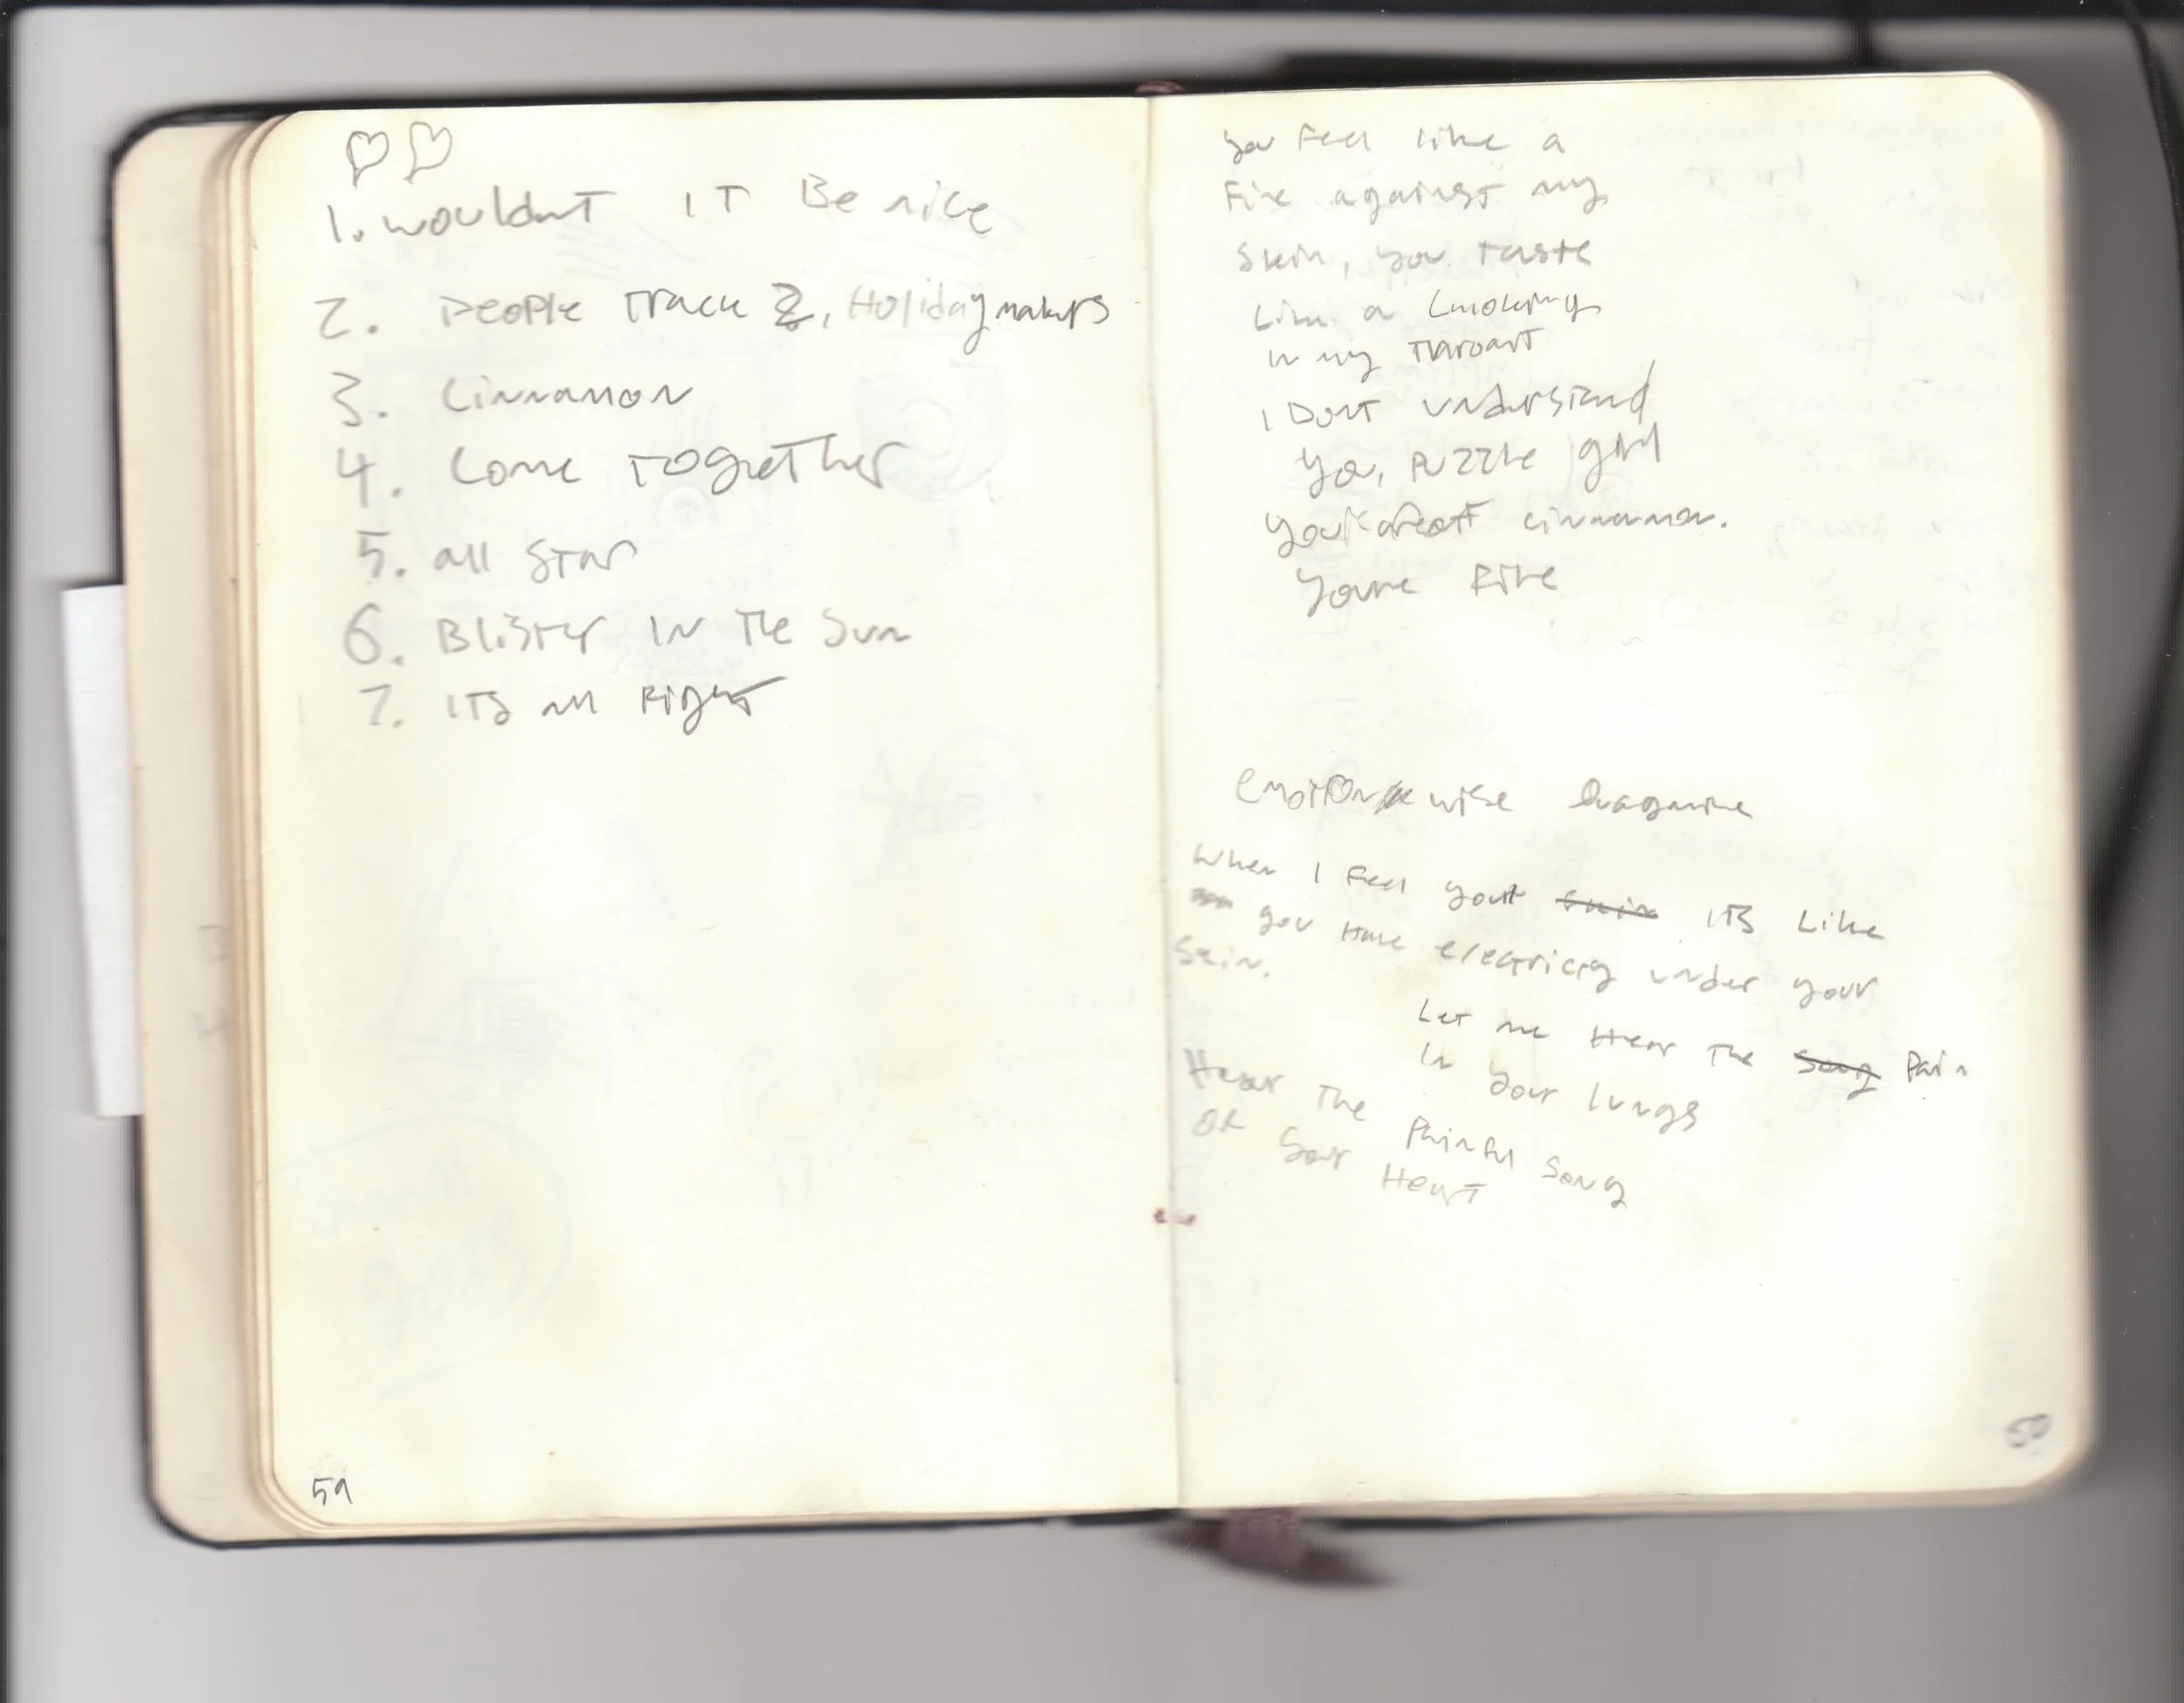 1. wouldnt IT Be nice
2. People Track 2, Holiday makers
3. Cinnamon
4. Come Together
5. all Star
6. Blister In The Sun
7. ITS all Right
59
You Feel like a
Fire against my
Skin, you taste
Like a Smoking
in my Throat
I Dont understand
You, puzzle girl
cinnamon.
Youre Fire
emotion wise
When I Feel your skin ITS Like
you Have electricity under your
Skin.
Let me Hear The Song Pain
In your lungs
Hear The Painful Song
OF your Heart
50